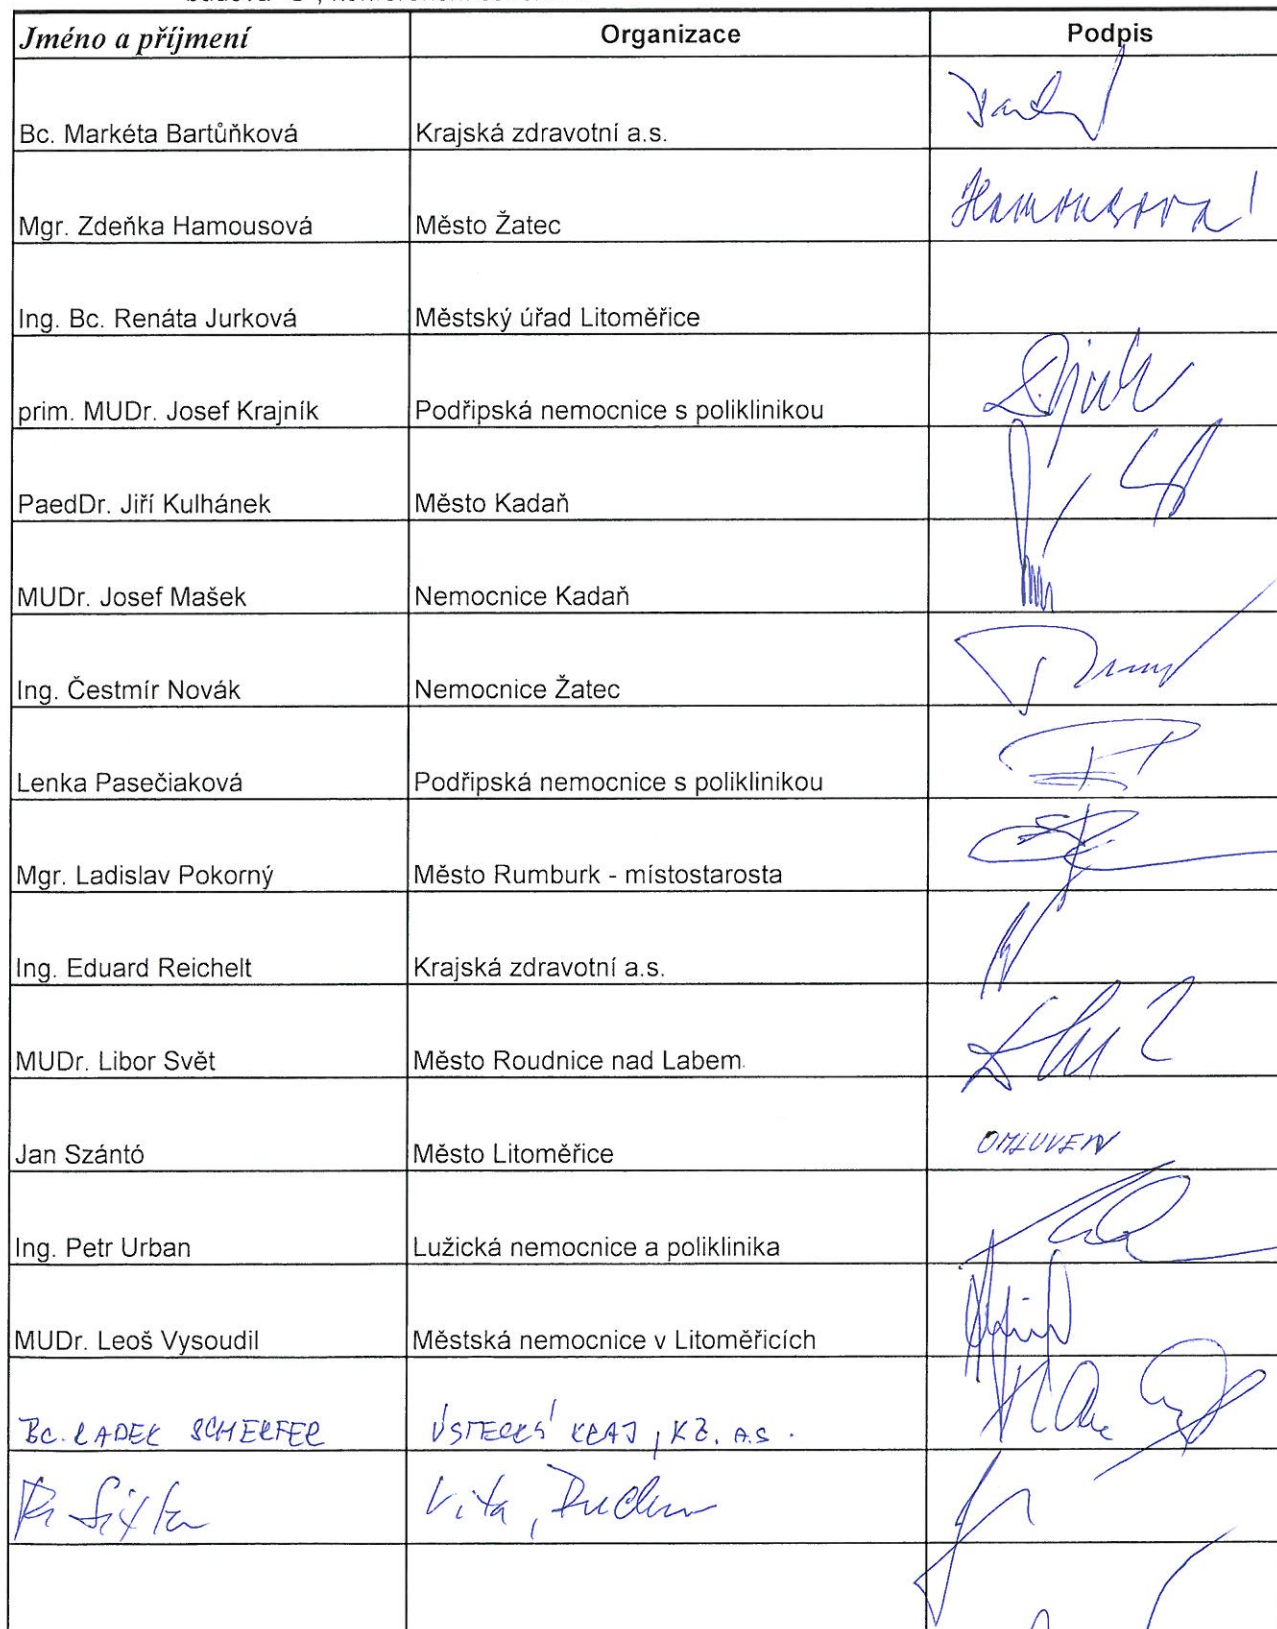 Jméno a příjmení Organizace Podpis
Bc. Markéta Bartůňková Krajská zdravotní a.s.
Mgr. Zdeňka Hamousová Město Žatec Hamousová
Ing. Bc. Renáta Jurková Městský úřad Litoměřice
prim. MUDr. Josef Krajník Podřipská nemocnice s poliklinikou
PaedDr. Jiří Kulhánek Město Kadaň
MUDr. Josef Mašek Nemocnice Kadaň
Ing. Čestmír Novák Nemocnice Žatec
Lenka Pasečiaková Podřipská nemocnice s poliklinikou
Mgr. Ladislav Pokorný Město Rumburk - místostarosta
Ing. Eduard Reichelt Krajská zdravotní a.s.
MUDr. Libor Svět Město Roudnice nad Labem
Jan Szántó Město Litoměřice OMLUVEN
Ing. Petr Urban Lužická nemocnice a poliklinika
MUDr. Leoš Vysoudil Městská nemocnice v Litoměřicích
BC. RADEK SCHERFER ÚSTECKÝ KRAJ, KZ. A.S.
Vita, Duchcov